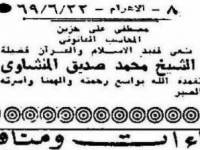 ٨ - الاهرام - ٦٩/٦/٢٢
مصطفى على هزين
المحاسب القانونى
نعى فقيد الاسلام والقرآن فضيلة
الشيخ محمد صديق المنشاوى
تغمده الله بواسع رحمته والهمنا وأسرته
الصبر